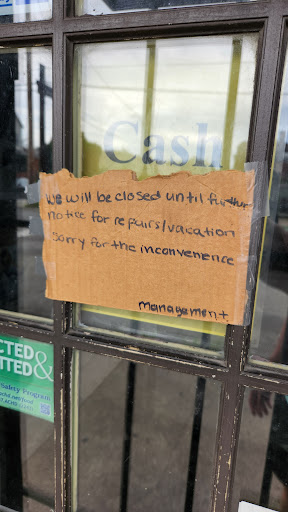 Cash
We will be closed until further
notice for repairs/vacation
Sorry for the inconvenience
Management
CTED &
TTED
Safety Program